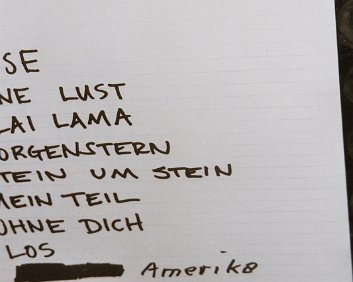 SE
NE LUST
LAI LAMA
ORGENSTERN
TEIN UM STEIN
MEIN TEIL
OHNE DICH
LOS
Amerika